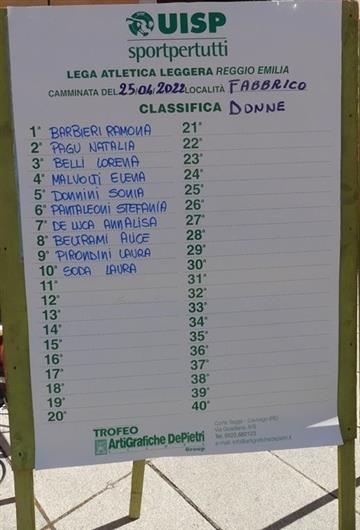 UISP
sportpertutti
LEGA ATLETICA LEGGERA REGGIO EMILIA
CAMMINATA DEL 25/04/2022 LOCALITÀ FABBRICO
CLASSIFICA DONNE
1° BARBIERI RAMONA
2° PAGU NATALIA
3° BELLI LORENA
4° MALVOLTI ELENA
5° DONNINI SONIA
6° PANTALEONI STEFANIA
7° DE LUCA ANNALISA
8° BELTRAMI ALICE
9° PIRONDINI LAURA
10° SODA LAURA
11°
12°
13°
14°
15°
16°
17°
18°
19°
20°
21°
22°
23°
24°
25°
26°
27°
28°
29°
30°
31°
32°
33°
34°
35°
36°
37°
38°
39°
40°
TROFEO
ArtiGrafiche DePietri
Group
Corte Tegge - Cavriago (RE)
Via Quadrelle, 4/B
Tel. 0522
e-mail: info@artigrafichedepietri.it